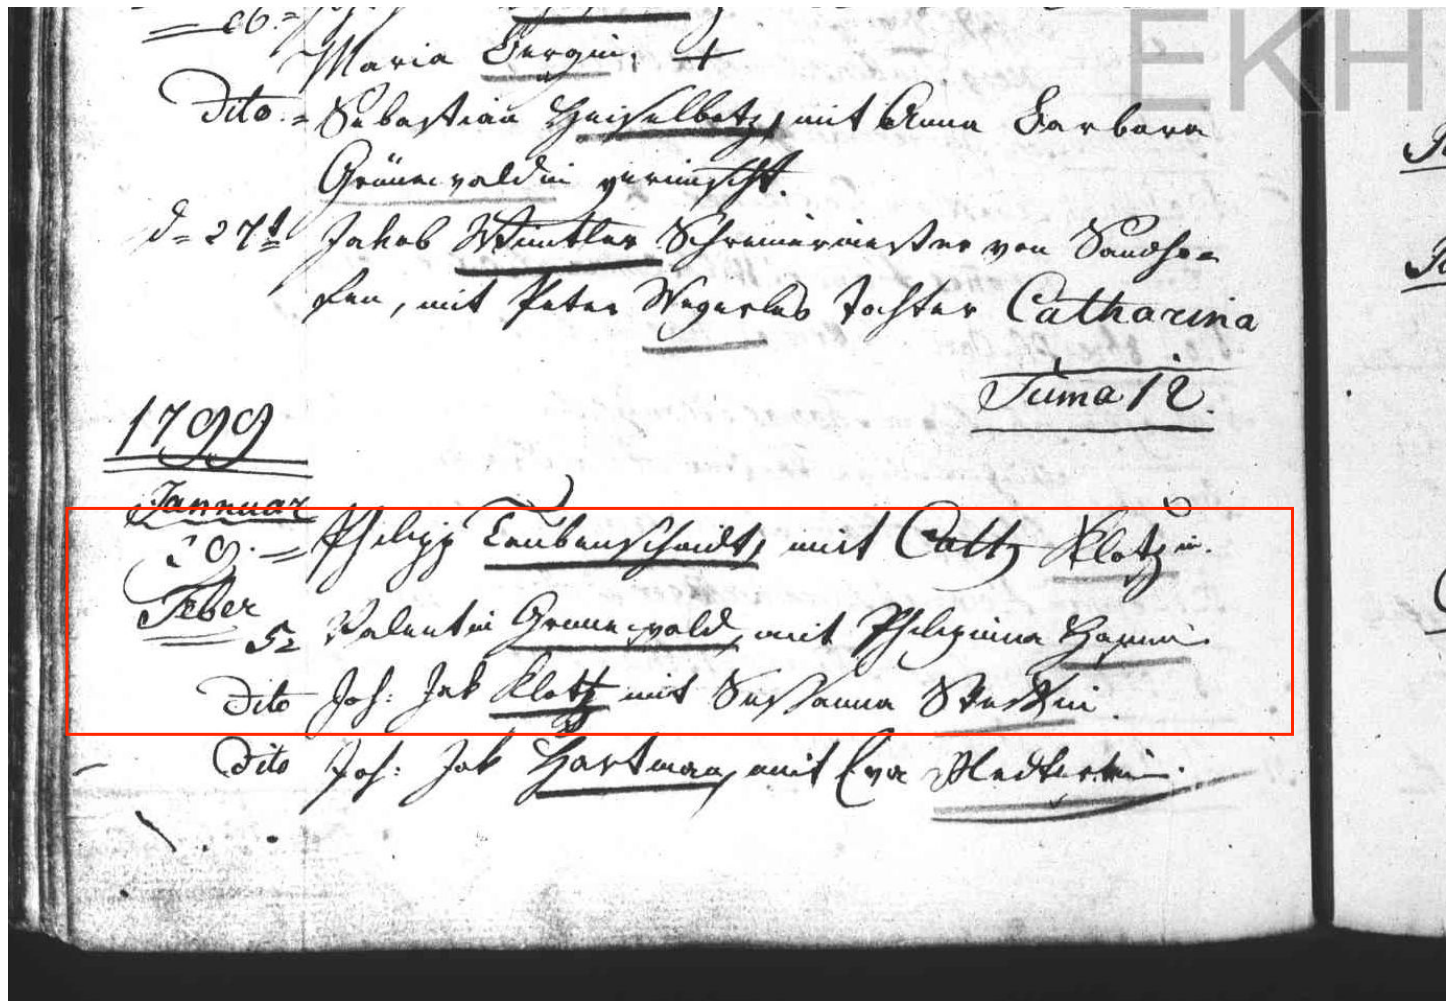 EKH
Maria Bergin. +
Dito = Sebastian Heiselbetz, mit Anna Barbara
Grünewaldin
d= 27t Jakob Winkler Schreinermeister von Sandho=
fen, mit Peter Wegerles Tochter Catharina
Suma 12.
1799
Jannuar
29. = Philipp Taubenschmidt, mit Cath Klotzin.
Feber
5= Valentin Grünewald, mit Philippina
Dito Joh: Jak Klotz mit Sussanna
Dito Joh: Jak Hartman, mit Eva